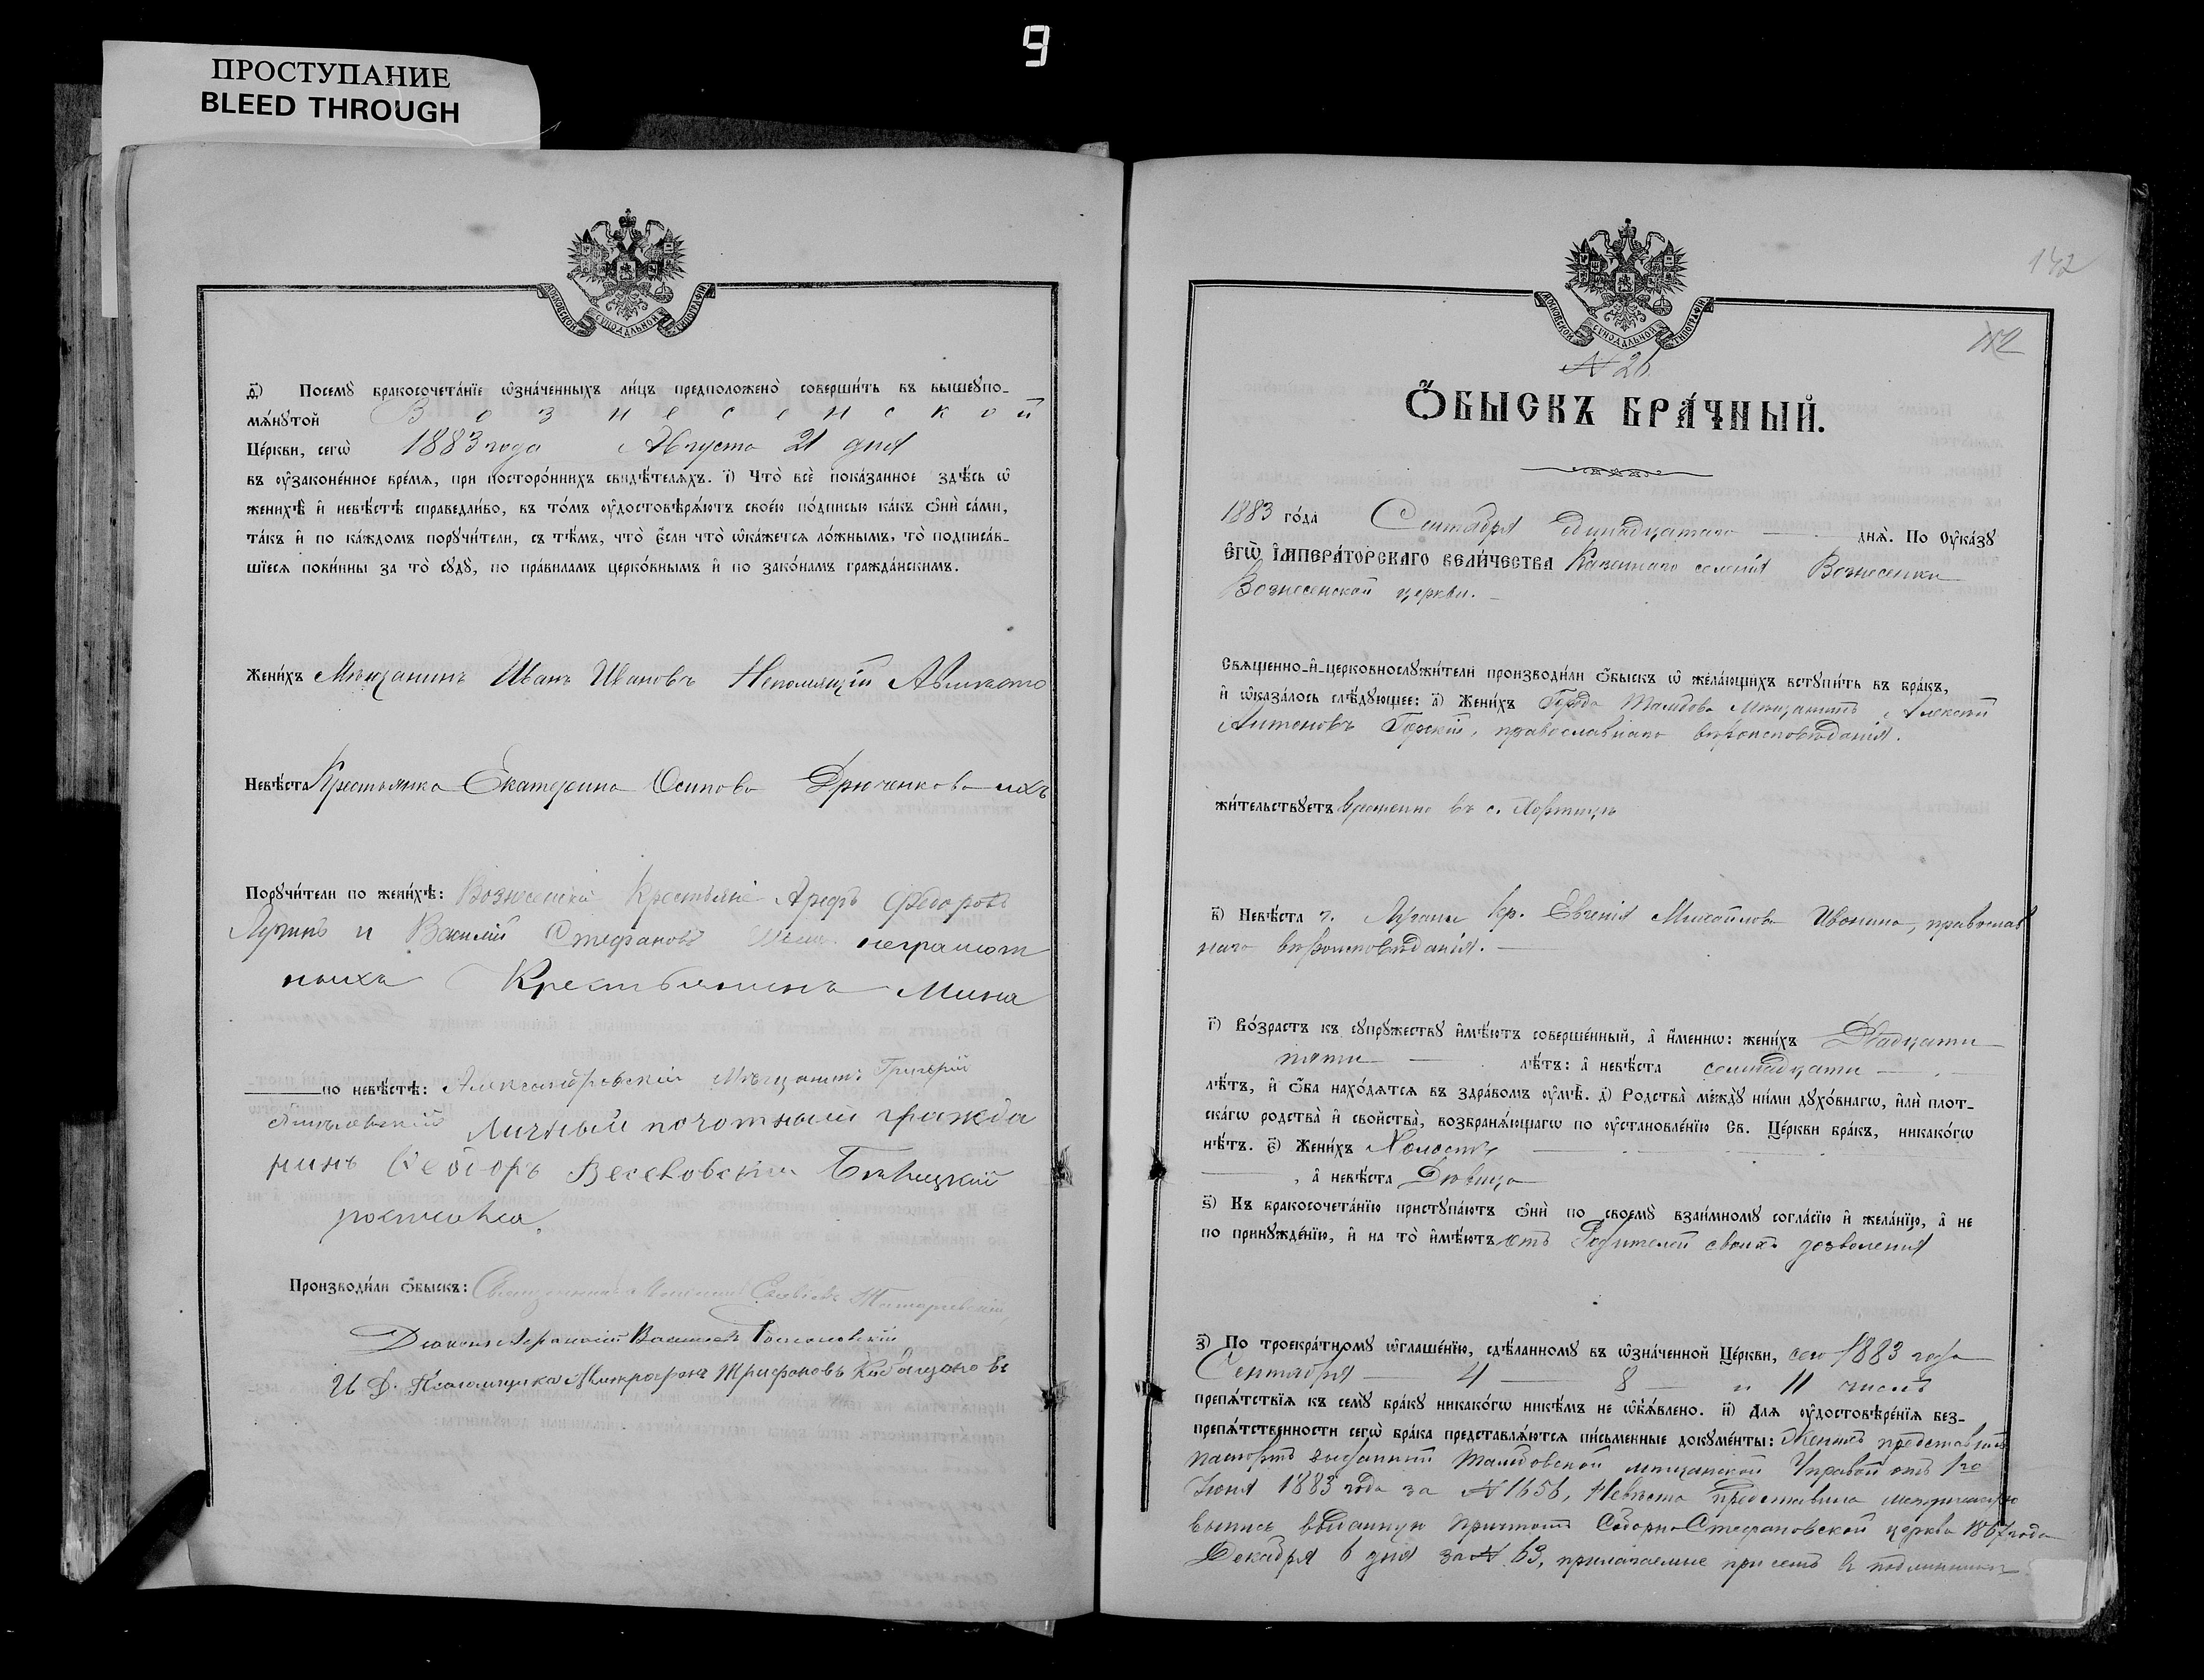 9
ПРОСТУПАНИЕ
BLEED THROUGH
МОСКОВСКОЙ СѴНОДАЛЬНОЙ ТИПОГРАФІИ
д҃) Посемꙋ бракосочета́нїе ѡ҆зна́ченныхъ ли́цъ предположено̀ соверши́ть въ вышеꙋпо-
мѧ́нꙋтой Вознесенской
Це́ркви, сегѡ̀ 1883 года Августа 21 дня
въ ᲂу҆законе́нное вре́мѧ, при посторо́ннихъ свидѣ́телѧхъ. і҃) Что̀ всѐ пока́занное здѣ́сь ѡ҆
женихѣ̀ и҆ невѣ́стѣ справедли́во, въ то́мъ ᲂу҆достовѣрѧ́ютъ свое́ю по́дписью ка́къ ѻ҆нѝ са́ми,
та́къ и҆ по ка́ждомъ порꙋчи́тели, съ тѣ́мъ, что̀ є҆́сли что̀ ѡ҆ка́жетсѧ ло́жнымъ, то̀ подписа́в-
шїесѧ пови́нны за то̀ сꙋдꙋ̀, по пра́виламъ церко́внымъ и҆ по зако́намъ гражда́нскимъ.
Жени́хъ Мѣщанинъ Иванъ Ивановъ
Невѣ́ста Крестьянка Екатерина Осипова Дрюченкова
Порꙋчи́тели по женихѣ̀: Вознесенскіе Крестьяне Федоровъ
и Василий Стефановъ неграмот
ныхъ Крестьянинъ Мина
по невѣ́стѣ: Александровскій Мѣщанинъ Григорій
Личный почотный гражда
нинъ Ѳеодоръ
Производи́ли ѻ҆́быскъ: Священникъ
И. Д. Псаломщика Митрофанъ Трифоновъ
142
МОСКОВСКОЙ СѴНОДАЛЬНОЙ ТИПОГРАФІИ
№ 26.
Ѻ҆́БЫСКЪ БРА́ЧНЫЙ.
1883 го́да Сентября Одинадцатаго днѧ̀. По ᲂу҆ка́зꙋ
Є҆ГѠ̀ І҆МПЕРА́ТОРСКАГО ВЕЛИ́ЧЕСТВА Казеннаго селенія Вознесенки
Вознесенской церкви.
Свѧще́нно-и҆-церковнослꙋжи́тели производи́ли ѻ҆́быскъ ѡ҆ жела́ющихъ встꙋпи́ть въ бра́къ,
и҆ ѡ҆каза́лось слѣ́дꙋющее: а҃) Жени́хъ Города Мѣщанинъ Алексѣй
Антоновъ Горскій, православнаго вѣроисповѣданія.
жи́тельствꙋетъ временно въ с. Хортицѣ
в҃) Невѣ́ста г. Лугани Кр. Евгенія Михайлова Иванина, православ
наго вѣроисповѣданія.
г҃) Во́зрастъ къ сꙋпрꙋ́жествꙋ и҆мѣ́ютъ соверше́нный, а҆ и҆́менно: жени́хъ Двадцати
пяти лѣ́тъ: а҆ невѣ́ста семнадцати
лѣ́тъ, и҆ ѻ҆́ба нахо́дѧтсѧ въ здра́вомъ ᲂу҆мѣ̀. д҃) Родства̀ междꙋ̀ ни́ми дꙋхо́внагѡ, и҆лѝ плот-
ска́гѡ родства̀ и҆ сво́йства, возбранѧ́ющагѡ по ᲂу҆становле́нїю Св. Це́ркви бра́къ, никако́гѡ
нѣ́тъ. є҃) Жени́хъ Холостъ
, а҆ невѣ́ста Дѣвица
ѕ҃) Къ бракосочета́нїю пристꙋпа́ютъ ѻ҆нѝ по своемꙋ̀ взаи́мномꙋ согла́сїю и҆ жела́нїю, а҆ не
по принꙋжде́нїю, и҆ на то̀ и҆мѣ́ютъ отъ Родителей своихъ дозволенія
з҃) По троекра́тномꙋ ѡ҆глаше́нїю, сдѣ́ланномꙋ въ ѡ҆зна́ченной Це́ркви, сего 1883 года
Сентября 4 8 и 11 числъ
препѧ́тствїѧ къ семꙋ̀ бра́кꙋ никако́гѡ никѣ́мъ не ѡ҆б̾ѧ́влено. и҃) Длѧ ᲂу҆достовѣре́нїѧ без-
препѧ́тственности сегѡ̀ бра́ка представлѧ́ютсѧ пи́сьменные докꙋме́нты: Женихъ представилъ
паспортъ выданный мѣщанской Управой отъ 1го
Іюня 1883 года за № 1656, Невѣста представила метрическую
выпись выданную причтомъ Соборно Стефановской церкви 1867 года
Декабря 6 дня за № 63, прилагаемые при семъ въ подлинникѣ